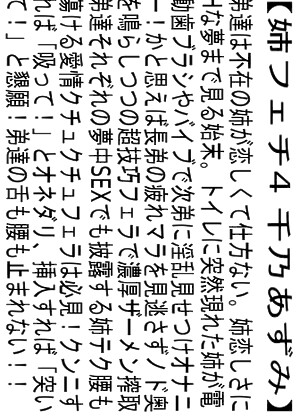 【姉フェチ4 千乃あずみ】
弟達は不在の姉が恋しくて仕方ない。姉恋しさに
Hな夢まで見る始末。トイレに突然現れた姉が電
動歯ブラシやバイブで次弟に淫乱見せつけオナニ
ー！かと思えば長弟の疲れマラを見逃さずノド奥
を鳴らしつつの超技巧フェラで濃厚ザーメン搾取
弟達それぞれの夢中SEXでも披露する姉テク腰も
蕩ける愛情クチュクチュフェラは必見！クンニす
れば「吸って！」とオネダリ、挿入すれば「突い
て！」と懇願！弟達の舌も腰も止まれない！！